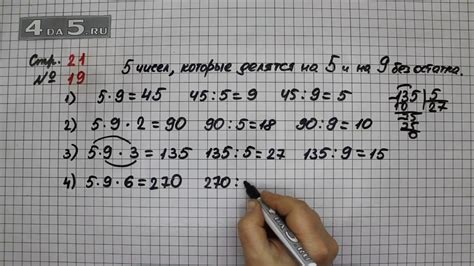 4DA5.RU
Стр. 21
№ 19
5 чисел, которые делятся на 5 и на 9 без остатка.
1) 5·9=45 45:5=9 45:9=5
2) 5·9·2=90 90:5=18 90:9=10
3) 5·9·3=135 135:5=27 135:9=15
4) 5·9·6=270 270:
135 5
10 27
35
35
0